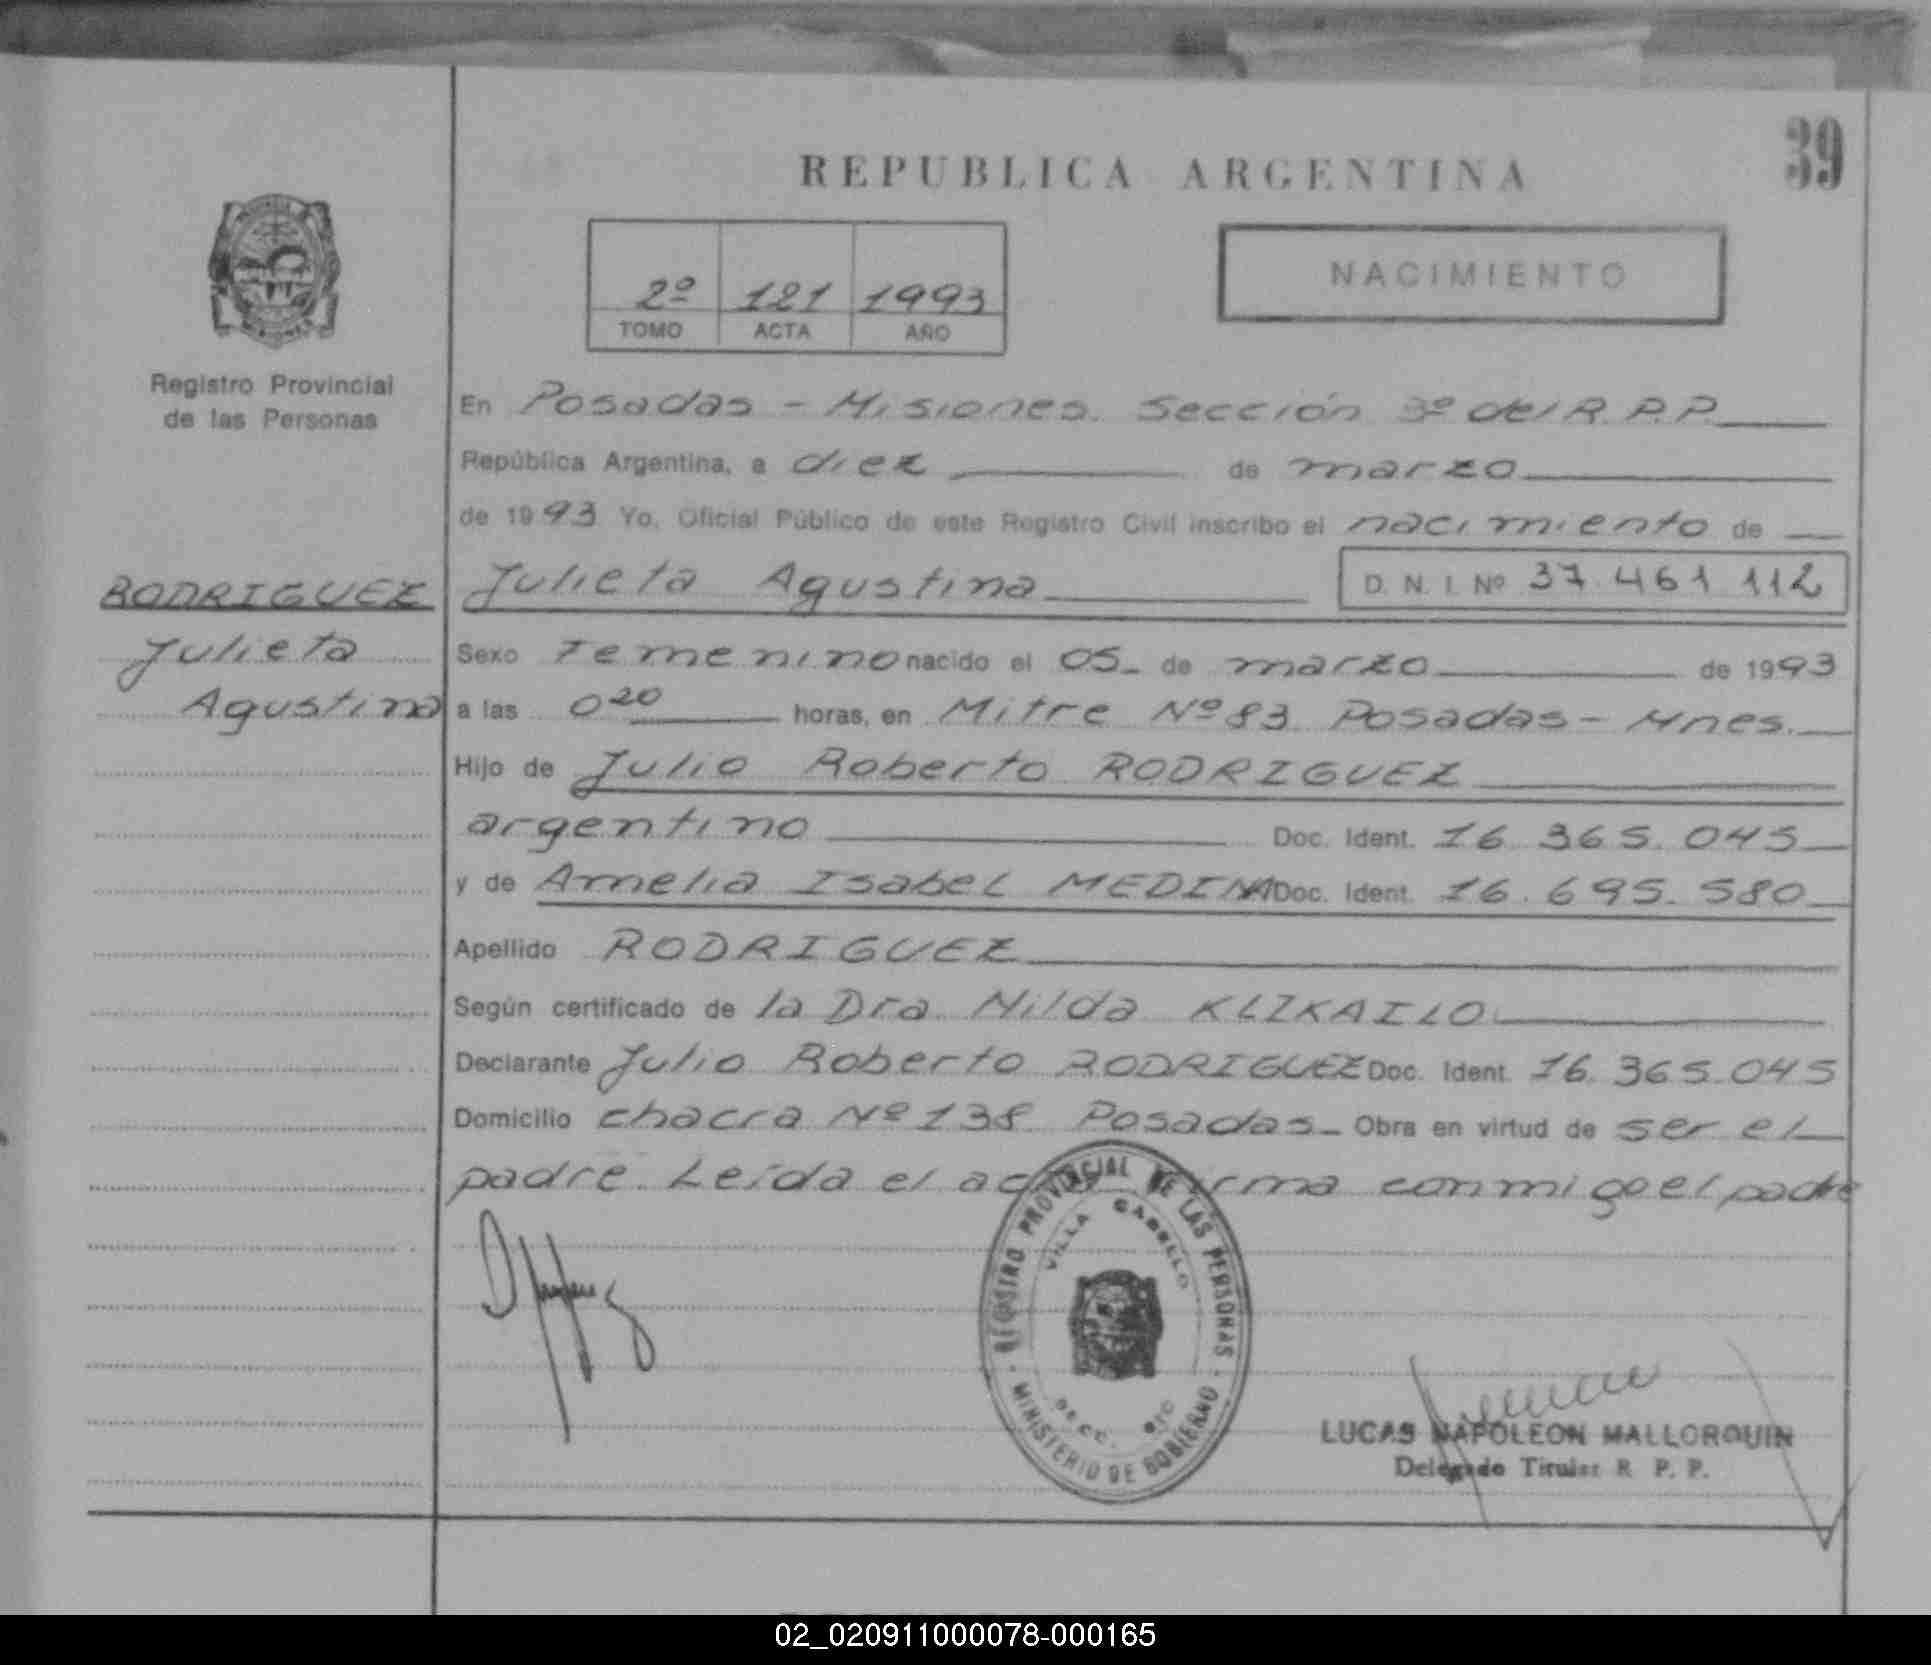 39
REPUBLICA ARGENTINA
2º 121 1993
TOMO ACTA AÑO
NACIMIENTO
Registro Provincial
de las Personas
En Posadas - Misiones. Sección 3º del R.P.P.
República Argentina, a diez de marzo
de 1993 Yo, Oficial Público de este Registro Civil inscribo el nacimiento de
RODRIGUEZ
Julieta
Agustina
Julieta Agustina D. N. I. Nº 37.461.112
Sexo Femenino nacido el 05 de marzo de 1993
a las 0 20 horas, en Mitre Nº 83 Posadas - Mnes.
Hijo de Julio Roberto RODRIGUEZ
argentino Doc. Ident. 16.365.045
y de Amelia Isabel MEDINA Doc. Ident. 16.695.580
Apellido RODRIGUEZ
Según certificado de la Dra. Nilda KLIKAILO
Declarante Julio Roberto RODRIGUEZ Doc. Ident. 16.365.045
Domicilio chacra Nº 138 Posadas Obra en virtud de ser el
padre. Leída el acta firma conmigo el padre
REGISTRO PROVINCIAL DE LAS PERSONAS
VILLA CABELLO
SECC.
MINISTERIO DE GOBIERNO
LUCAS NAPOLEON MALLORQUIN
Delegado Titular R. P. P.
02_020911000078-000165